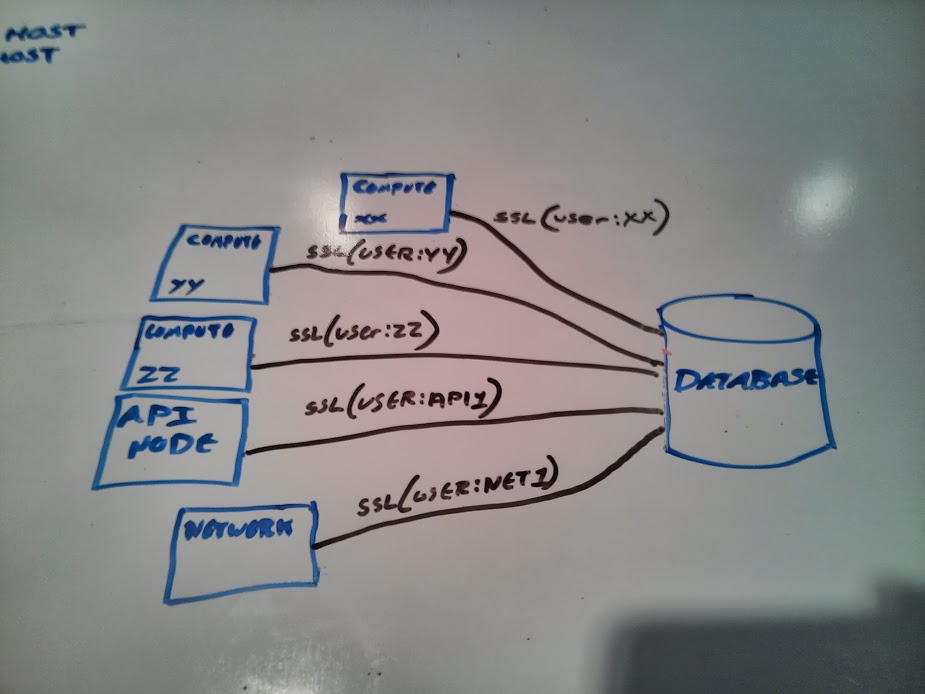 HOST
HOST
COMPUTE
XX
SSL(user:XX)
COMPUTE
YY
SSL(USER:YY)
COMPUTE
ZZ
SSL(user:ZZ)
API
NODE
SSL(USER:API1)
NETWORK
SSL(USER:NET1)
DATABASE